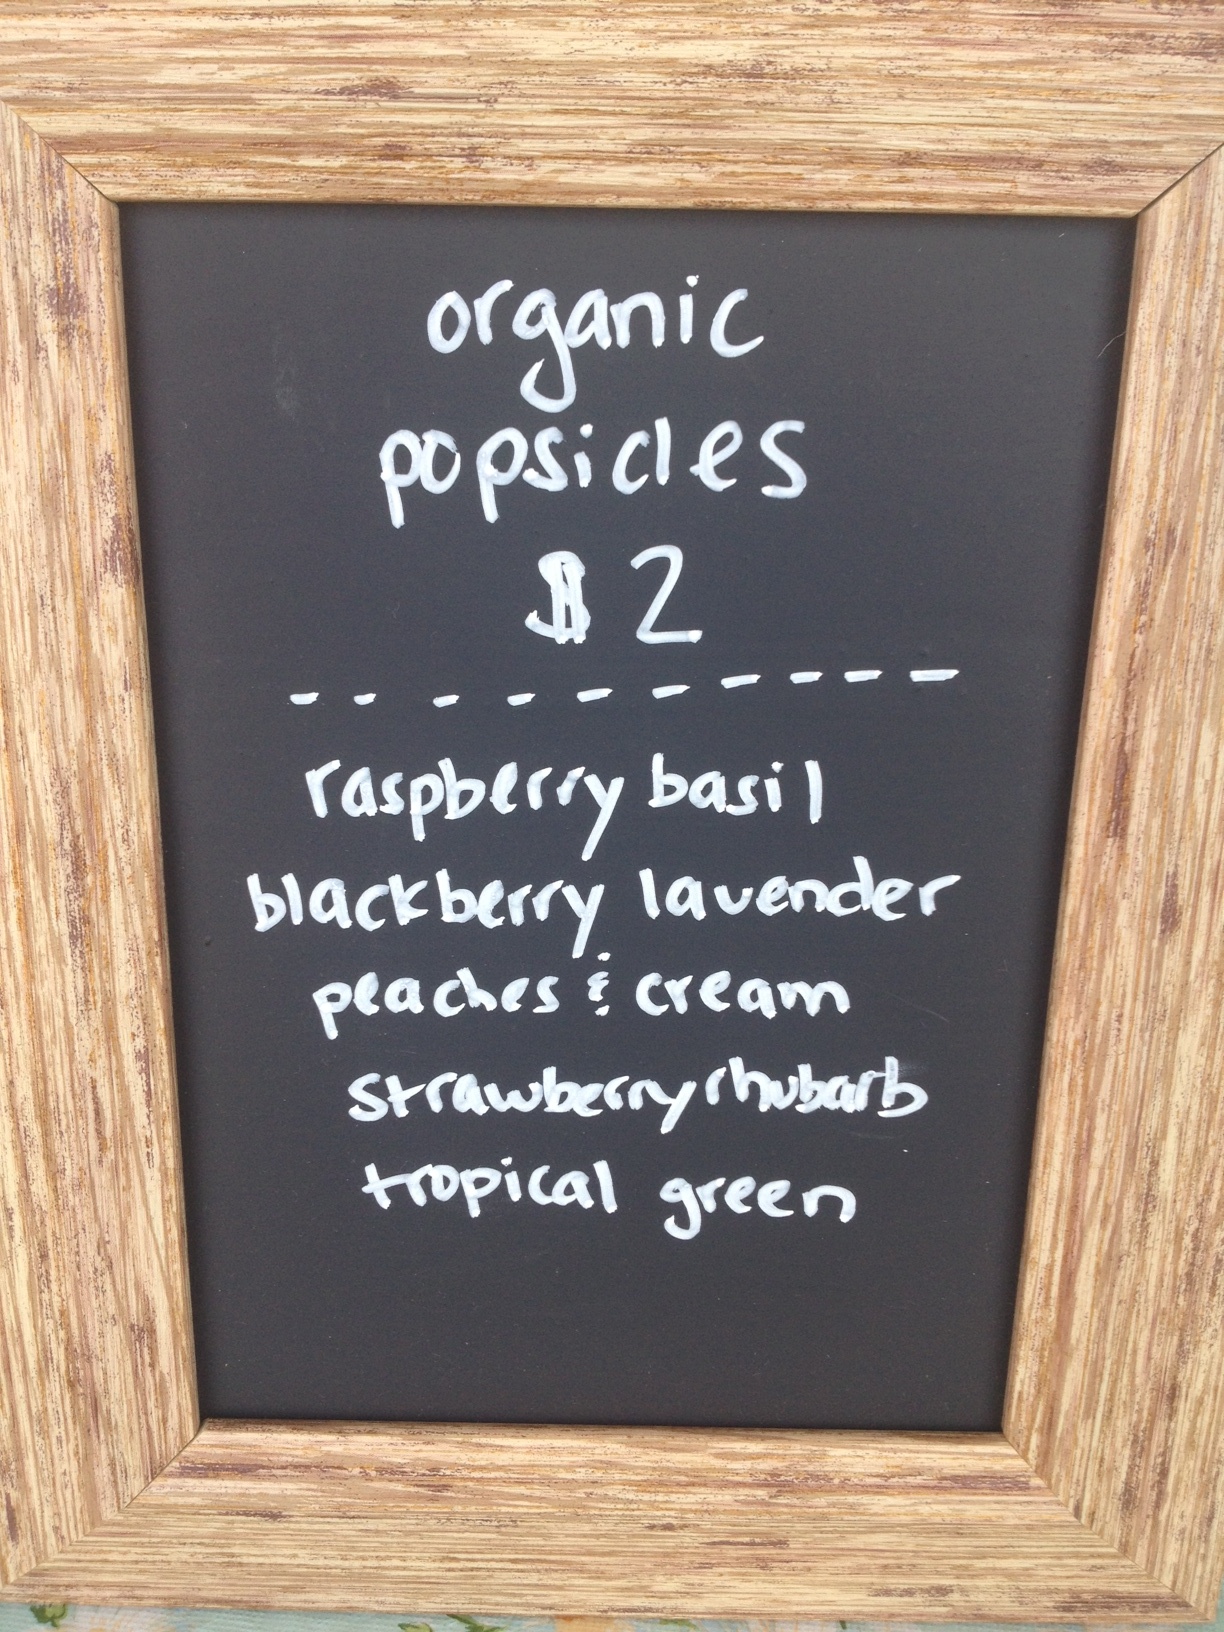 organic
popsicles
$2
- - - - - - - - - -
raspberry basil
blackberry lavender
peaches & cream
strawberry rhubarb
tropical green